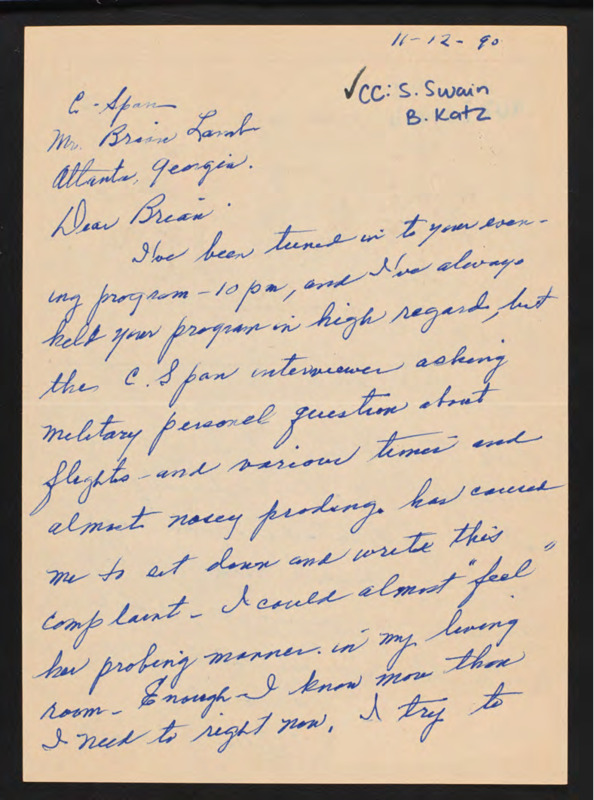 11-12-90
✓CC: S. Swain
B. Katz
C-Span
Mr. Brian Lamb
Atlanta, Georgia.
Dear Brian.
I've been tuned in to your even-
ing program - 10 pm, and I've always
held your program in high regards, but
the C. Span interviewer asking
military personel question about
flights - and various times and
almost nosey proding. has caused
me to sit down and write this
complaint - I could almost "feel"
her probing manner. in my living
room - Enough - I know more than
I need to right now. I try to